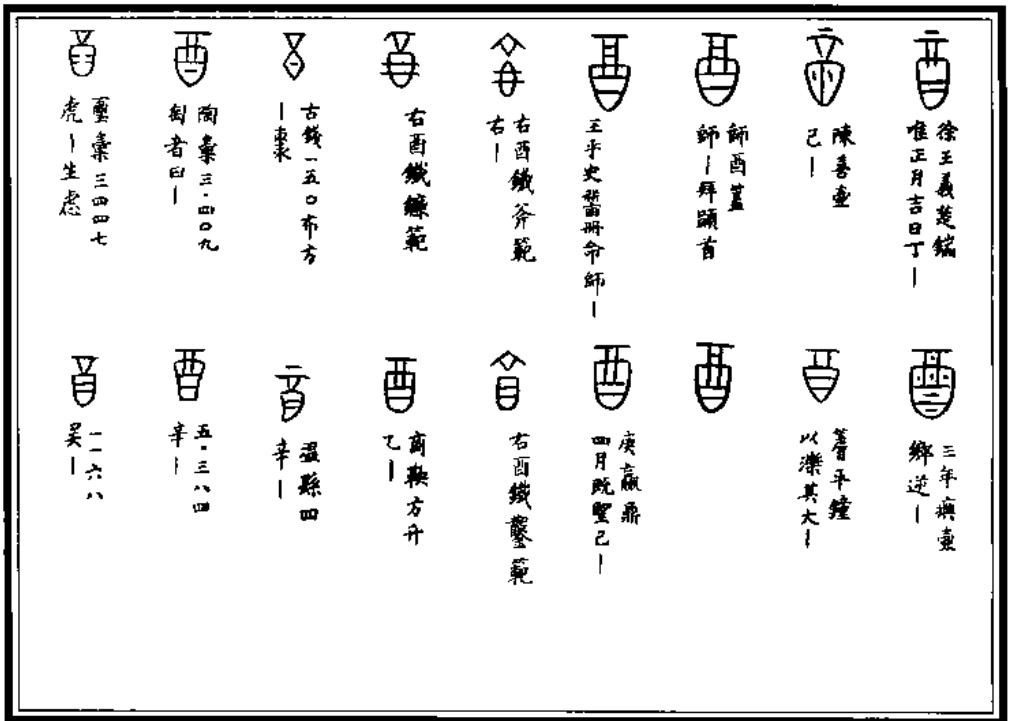 徐王義楚鍴
唯正月吉日丁—
陳喜壺
己—
師酉簋
師—拜䭫首
王乎史册命師—
右酉鐵斧範
右—
右酉鐵鐮範
古錢一五〇布方
—棗
陶彙三·四〇九
匋者曰—
璽彙三四四七
虎—生慮
三年𤼈壺
鄉逆—
簷平鐘
以濼其大—
庚嬴鼎
四月既望己—
右酉鐵鑿範
商鞅方升
乙—
溫縣四
辛—
五·三八四
辛—
一一六八
吳—